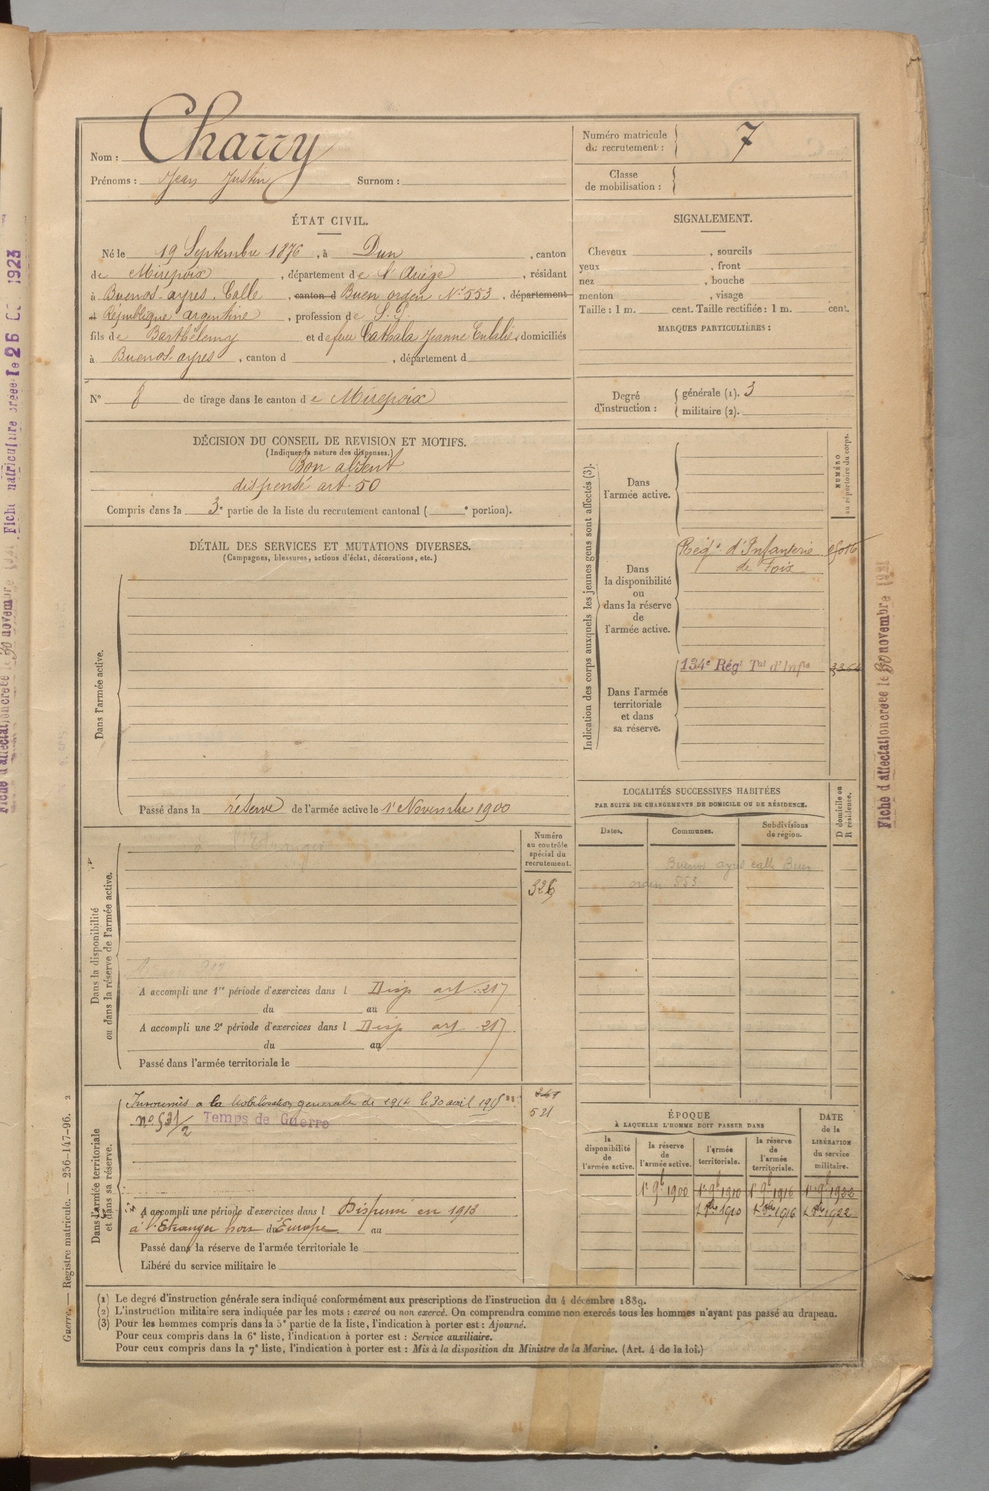 Nom : Charry
Prénoms : Jean Justin Surnom :
Numéro matricule du recrutement : 7
Classe de mobilisation :
ÉTAT CIVIL.
Né le 19 Septembre 1876, à Dun, canton
de Mirepoix, département de l'Ariège, résidant
à Buenos-ayres, Calle, canton d Buen orden No 553, département
d République argentine, profession de S. P.
fils de Barthélemy et de feu Cathala Jeanne Eulalie, domiciliés
à Buenos-ayres, canton d , département d
No 8 de tirage dans le canton de Mirepoix
SIGNALEMENT.
Cheveux , sourcils
yeux , front
nez , bouche
menton , visage
Taille : 1 m. cent. Taille rectifiée : 1 m. cent.
MARQUES PARTICULIÈRES :
Degré d'instruction : générale (1). 3
militaire (2).
DÉCISION DU CONSEIL DE REVISION ET MOTIFS.
(Indiquer la nature des dispenses.)
Bon absent
dispensé art. 50
Compris dans la 3e partie de la liste du recrutement cantonal ( e portion).
DÉTAIL DES SERVICES ET MUTATIONS DIVERSES.
(Campagnes, blessures, actions d'éclat, décorations, etc.)
Dans l'armée active.
Passé dans la réserve de l'armée active le 1r Novembre 1900
Indication des corps auxquels les jeunes gens sont affectés (3).
NUMÉRO au répertoire du corps.
Dans l'armée active.
Dans la disponibilité ou dans la réserve de l'armée active.
Régt d'Infanterie
de Foix
Dans l'armée territoriale et dans sa réserve.
134e Régt Tal d'Infie
LOCALITÉS SUCCESSIVES HABITÉES
PAR SUITE DE CHANGEMENTS DE DOMICILE OU DE RÉSIDENCE.
D domicile ou R résidence.
Dates. Communes. Subdivisions de région.
Buenos ayres calle Buen
orden 553
Dans la disponibilité ou dans la réserve de l'armée active.
à l'Etranger
Numéro au contrôle spécial du recrutement.
326
A accompli une 1re période d'exercices dans l Disp art. 217
du au
A accompli une 2e période d'exercices dans l Disp art 217
du au
Passé dans l'armée territoriale le
Dans l'armée territoriale et dans sa réserve.
Insoumis à la Mobilisation générale de 1914 le 30 avril 1915
no 531/2 Temps de Guerre
521
A accompli une période d'exercices dans l Dispensé en 1913
à l'Etranger hors d'Europe au
Passé dans la réserve de l'armée territoriale le
Libéré du service militaire le
ÉPOQUE
À LAQUELLE L'HOMME DOIT PASSER DANS
la disponibilité de l'armée active. la réserve de l'armée active. l'armée territoriale. la réserve de l'armée territoriale.
DATE de la LIBÉRATION du service militaire.
1r 9bre 1900 1r 9bre 1910 1r 9bre 1916 1r 9bre 1922
1 8bre 1910 1 8bre 1916 1 8bre 1922
(1) Le degré d'instruction générale sera indiqué conformément aux prescriptions de l'instruction du 4 décembre 1889.
(2) L'instruction militaire sera indiquée par les mots : exercé ou non exercé. On comprendra comme non exercés tous les hommes n'ayant pas passé au drapeau.
(3) Pour les hommes compris dans la 5e partie de la liste, l'indication à porter est : Ajourné.
Pour ceux compris dans la 6e liste, l'indication à porter est : Service auxiliaire.
Pour ceux compris dans la 7e liste, l'indication à porter est : Mis à la disposition du Ministre de la Marine. (Art. 4 de la loi.)
Guerre. — Registre matricule. — 256-147-96. 2
Fiche d'affectation créée le 30 novembre
Fiche matriculaire créée le 26 1923
Fiche d'affectation créée le 30 novembre